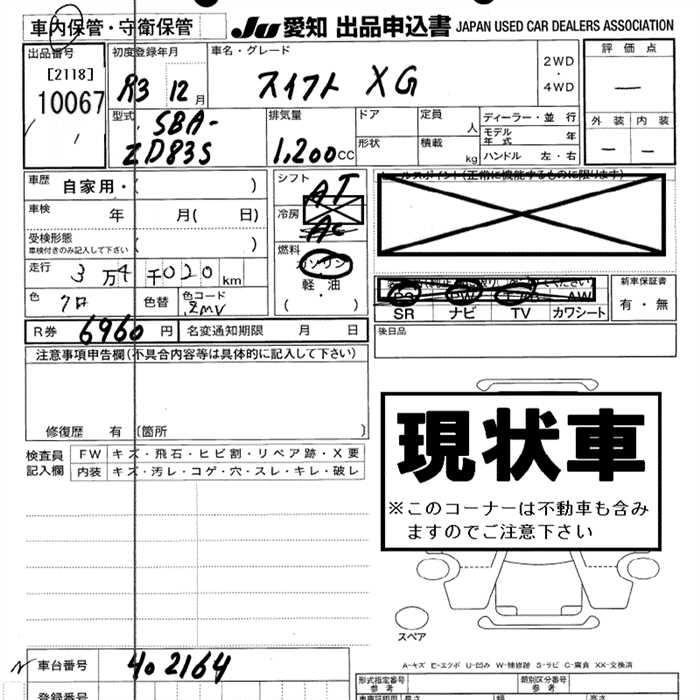 車内保管・守衛保管
JU 愛知 出品申込書 JAPAN USED CAR DEALERS ASSOCIATION
出品番号
[2118]
10067
初度登録年月
R3 12月
車名・グレード
スイフト XG
2WD
・
4WD
評価点
—
外装 内装
— —
型式
5BA-
ZD83S
排気量
1,200cc
ドア
定員
人
形状
積載
kg
ディーラー・並行
モデル年式 年
ハンドル 左・右
車歴 自家用・( )
車検 年 月( 日)
受検形態
車検付きのみ記入して下さい ( )
走行 3万4千020km
色 クロ 色替 色コード ZMV
R券 6960円 名変通知期限 月 日
シフト AT
冷房 AC
燃料
ガソリン
軽・油
( )
セールスポイント(正常に機能するものに限ります)
PS PW エアB AW
SR ナビ TV カワシート
新車保証書
有・無
後日品
注意事項申告欄(不具合内容等は具体的に記入して下さい)
修復歴 有 (箇所 )
検査員記入欄
FW キズ・飛石・ヒビ割・リペア跡・X要
内装 キズ・汚レ・コゲ・穴・スレ・キレ・破レ
現状車
※このコーナーは不動車も含み
ますのでご注意下さい
スペア
A-キズ E-エクボ U-凹み W-補修跡 S-サビ C-腐食 XX-交換済
車台番号 402164
登録番号
形式指定番号
参考
類別区分番号
参考
長さ
幅
高さ